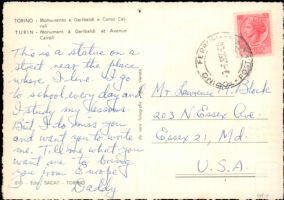 TORINO - Monumento a Garibaldi e Corso Cairoli
TURIN - Monument à Garibaldi et Avenue Cairoli
This is a statue on a
street near the place
where I live. I go
to school every day and
I study my lessons.
But I do miss you
and want you to write
me. Tell me what you
want me to bring
you from Europe.
Daddy
Edit. SACAT - TORINO
Mr. Lawrence M. Block
203 N Essex Ave.
Essex 21, Md.
U.S.A.